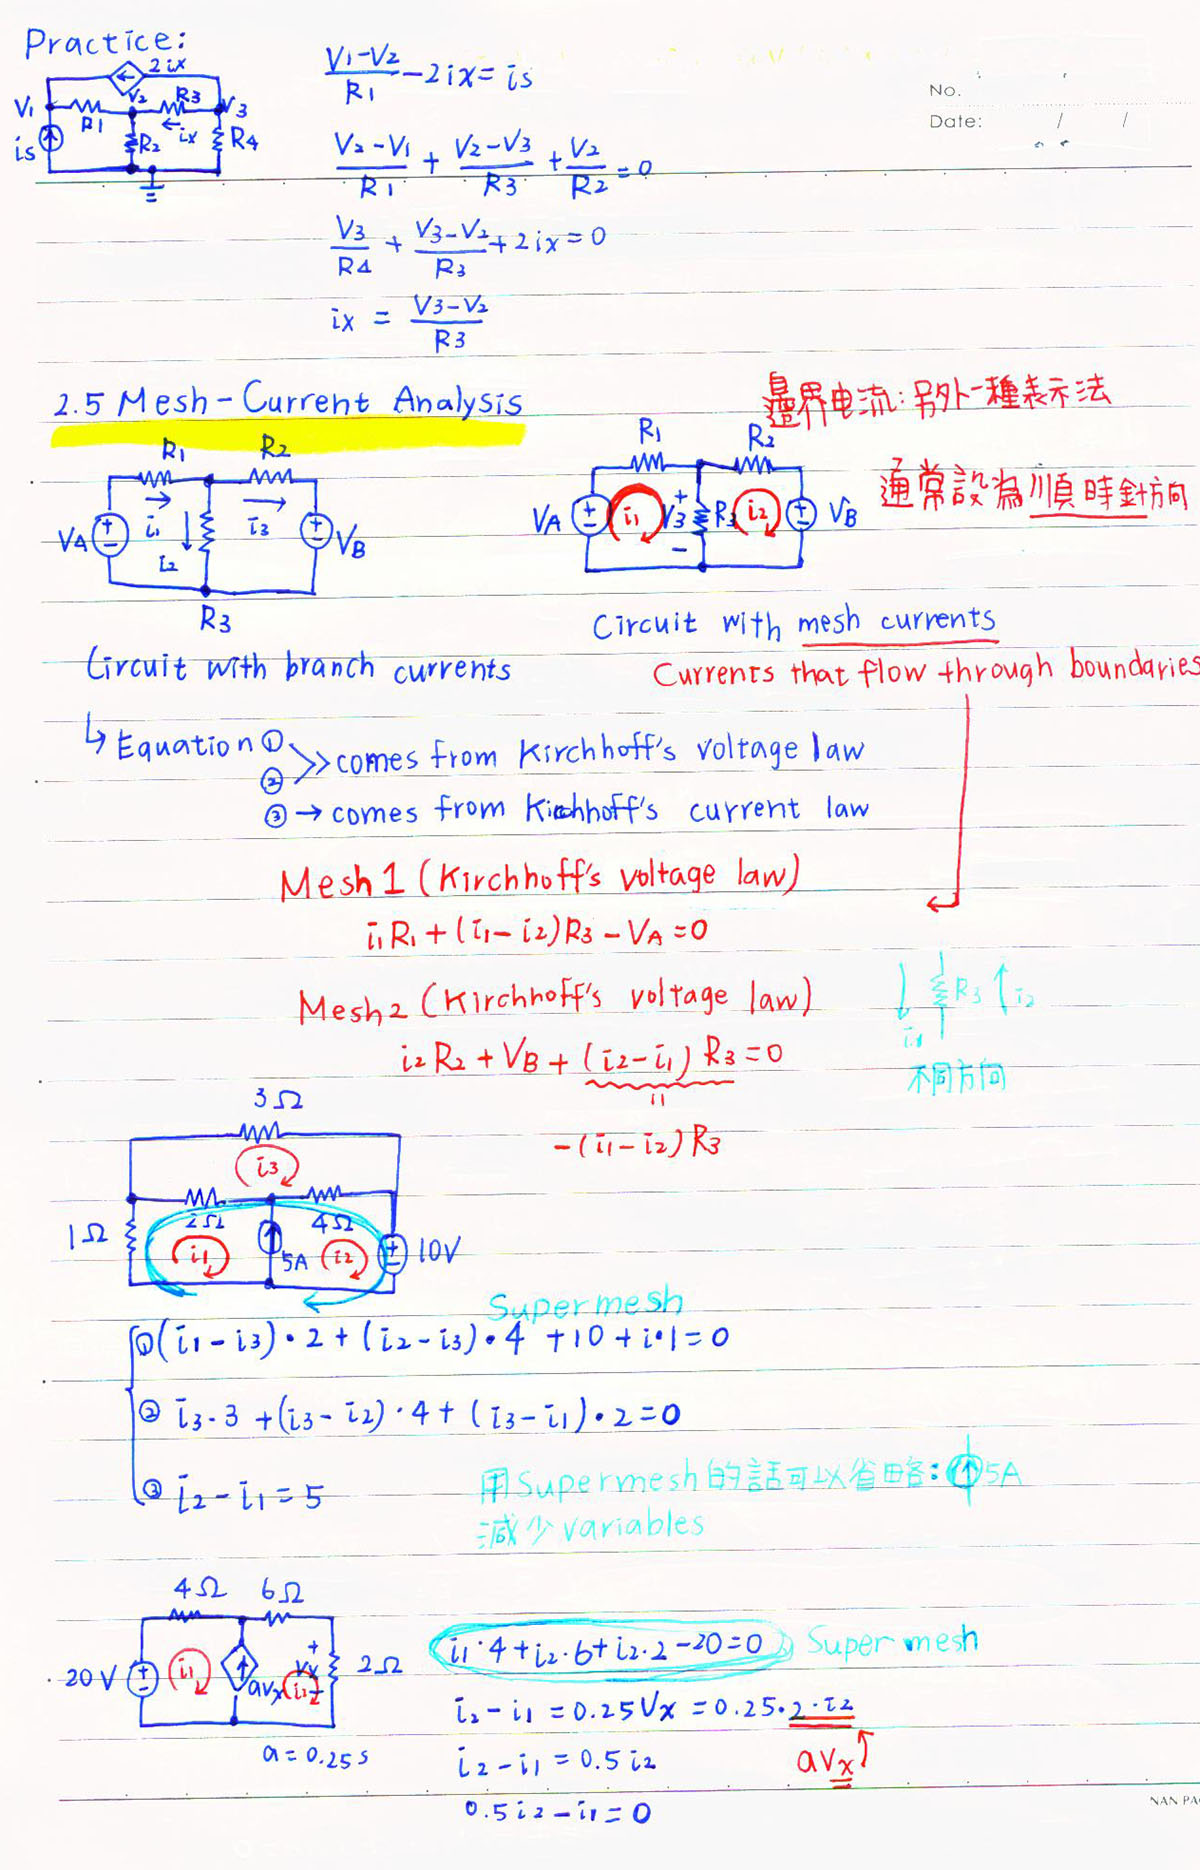 Practice:
2ix
V1
V2
R3
V3
R1
ix
R2
R4
is
(V1-V2)/R1 - 2ix = is
(V2-V1)/R1 + (V2-V3)/R3 + V2/R2 = 0
V3/R4 + (V3-V2)/R3 + 2ix = 0
ix = (V3-V2)/R3
No.
Date: / /
2.5 Mesh-Current Analysis
邊界电流:另外一種表示法
通常設為順時針方向
R1 R2
VA i1 i2 i3 VB
R3
Circuit with branch currents
R1 R2
VA i1 + V3 - R3 i2 VB
Circuit with mesh currents
Currents that flow through boundaries
↳ Equation ①
② >> comes from Kirchhoff's voltage law
③ → comes from Kirchhoff's current law
Mesh 1 (Kirchhoff's voltage law)
i1R1 + (i1-i2)R3 - VA = 0
Mesh 2 (Kirchhoff's voltage law)
i2R2 + VB + (i2-i1) R3 = 0
=
-(i1-i2)R3
i1 R3 i2
不同方向
3Ω
i3
2Ω 4Ω
1Ω
i1 5A i2 10V
Supermesh
① (i1-i3)·2 + (i2-i3)·4 +10 + i·1 = 0
② i3·3 + (i3-i2)·4 + (i3-i1)·2 = 0
③ i2-i1 = 5
用Supermesh的話可以省略: ↑ 5A
減少variables
4Ω 6Ω
20V i1 avx + vx - i2 2Ω
a = 0.25s
i1·4 + i2·6 + i2·2 - 20 = 0 Supermesh
i2-i1 = 0.25Vx = 0.25·2·i2
i2-i1 = 0.5i2
avx
0.5i2-i1 = 0
NAN PA